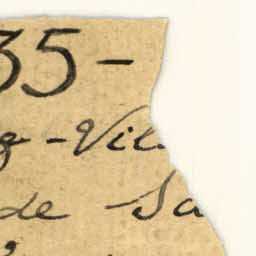 35-
-Vil
de Sa